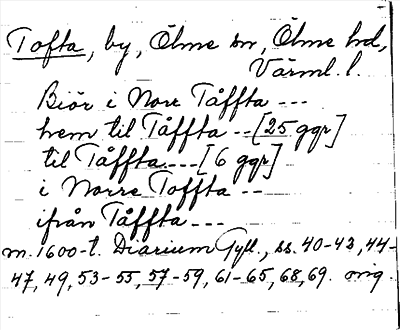 Tofta, by, Ölme sn, Ölme hd,
Värml. l.
Biör i Norr Tåffta ---
hem til Tåffta --[25 ggr]
til Tåffta ---[6 ggr]
i Norre Toffta --
ifrån Tåffta ---
m. 1600-t. Diarium Gyll., ss. 40-43, 44-
47, 49, 53-55, 57-59, 61-65, 68, 69. orig.